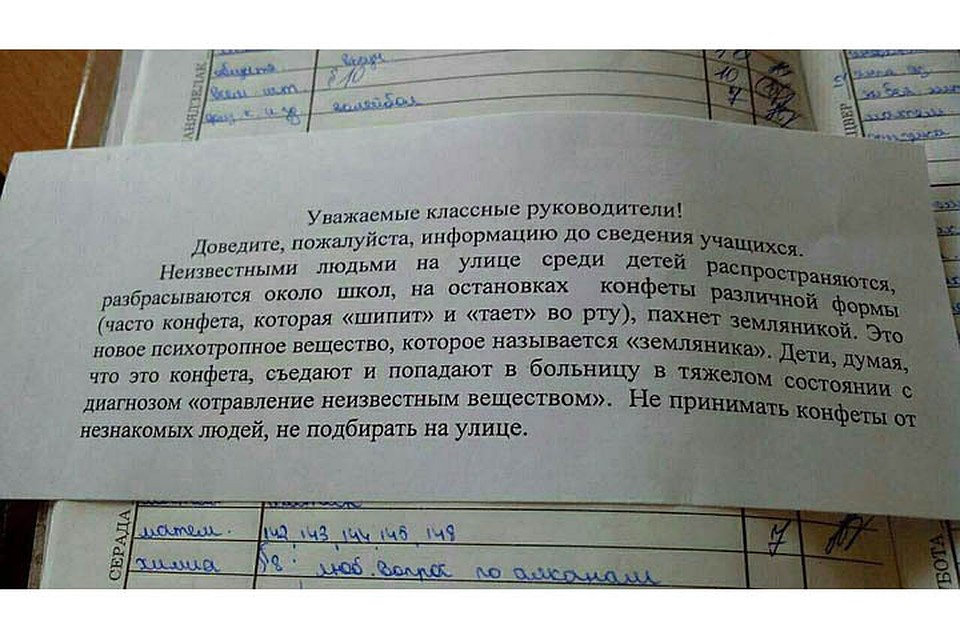 волейбол
10
7
АНЯДЗЕЛАК
Уважаемые классные руководители!
Доведите, пожалуйста, информацию до сведения учащихся.
Неизвестными людьми на улице среди детей распространяются,
разбрасываются около школ, на остановках конфеты различной формы
(часто конфета, которая «шипит» и «тает» во рту), пахнет земляникой. Это
новое психотропное вещество, которое называется «земляника». Дети, думая,
что это конфета, съедают и попадают в больницу в тяжелом состоянии с
диагнозом «отравление неизвестным веществом». Не принимать конфеты от
незнакомых людей, не подбирать на улице.
СЕРАДА
матем. 142, 143, 144, 145, 148 7
химия §8. люб. вопрос по алканам
БОТА